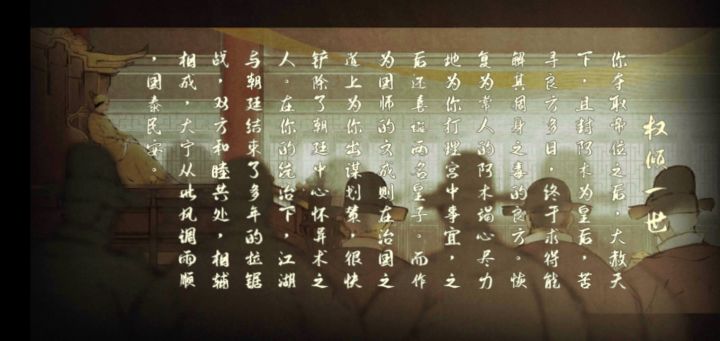 权倾一世
你夺取帝位之后，大赦天
下，且封阿术为皇后，苦
寻良方多日，终于求得能
解其周身之毒的良方。恢
复为常人的阿术竭心尽力
地为你打理宫中事宜，之
后还喜诞两名皇子。而作
为国师的玄成则在治国之
道上为你出谋划策，很快
铲除了朝廷中心怀异术之
人。在你的统治下，江湖
与朝廷结束了多年的拉锯
战，双方和睦共处，相辅
相成，大宁从此风调雨顺
，国泰民安。